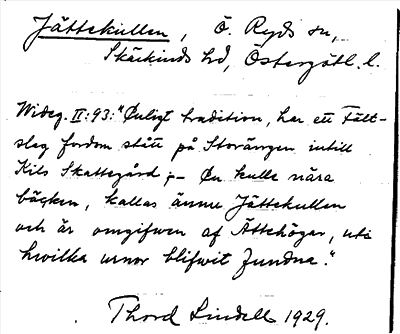 Jättekullen, Ö. Ryds sn,
Skärkinds hd, Östergötl. l.
Wideg. II:93: "Enligt tradition, har ett Fält-
slag fordom stått på Storängen intill
Kils Skattegård; - En kulle nära
bäcken, kallas ännu Jättekullen
och är omgifwen af Ättehögar, uti
hwilka urnor blifwit funдne."
Thord Lindell 1929.